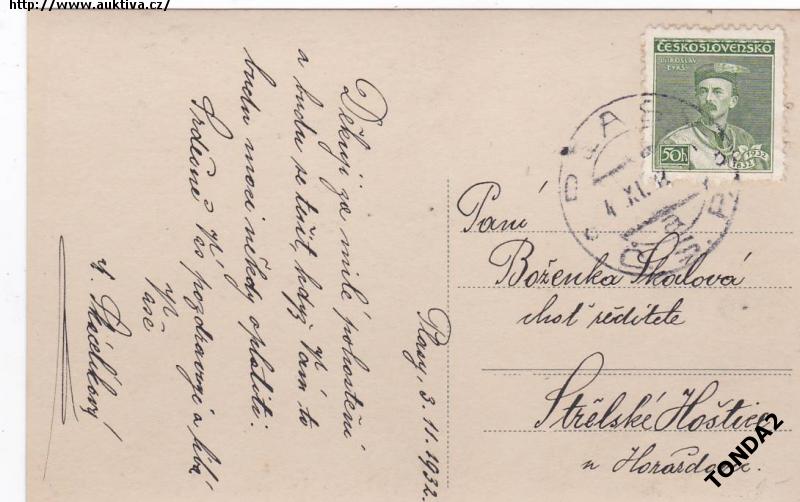 http://www.auktiva.cz/
ČESKOSLOVENSKO
MIROSLAV
TYRŠ
50h
1832
1932
PLASY
4.XI.32
Plasy, 3. 11. 1932.
Děkuji za milé pohostění
a budu se těšit, když Vám to
budu moci někdy oplatiti.
Srdečně Vás pozdravuje a líbá
Vaše
Paní
Boženka Skalová
choť ředitele
Střelské Hoštice
u Horažďovic
TONDA2